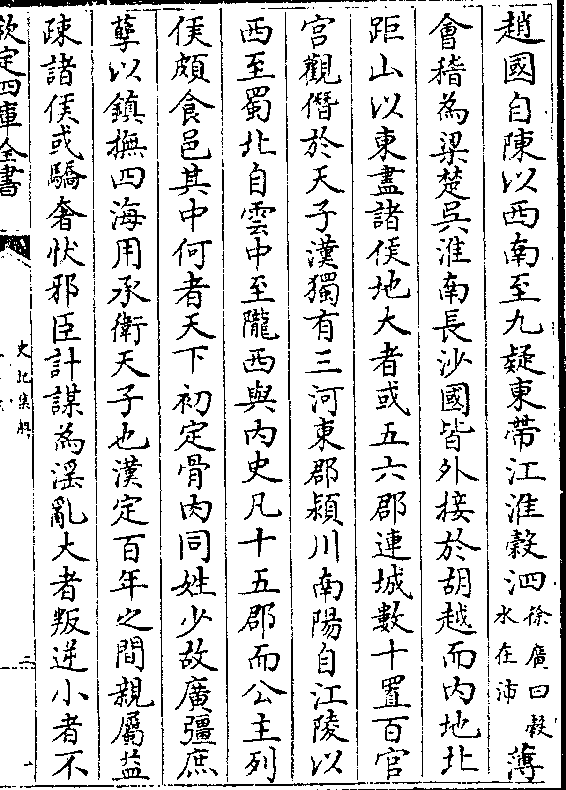 趙國自陳以西南至九疑東帶江淮榖泗徐廣曰榖水在沛薄
會稽為梁楚吳淮南長沙國皆外接於胡越而内地北
距山以東盡諸侯地大者或五六郡連城數十置百官
宫觀僭於天子漢獨有三河東郡潁川南陽自江陵以
西至蜀北自雲中至隴西與内史凡十五郡而公主列
侯頗食邑其中何者天下初定骨肉同姓少故廣彊庶
孽以鎮撫四海用承衛天子也漢定百年之間親屬益
疎諸侯或驕奢忕邪臣計謀為淫亂大者叛逆小者不
欽定四庫全書
史記集解